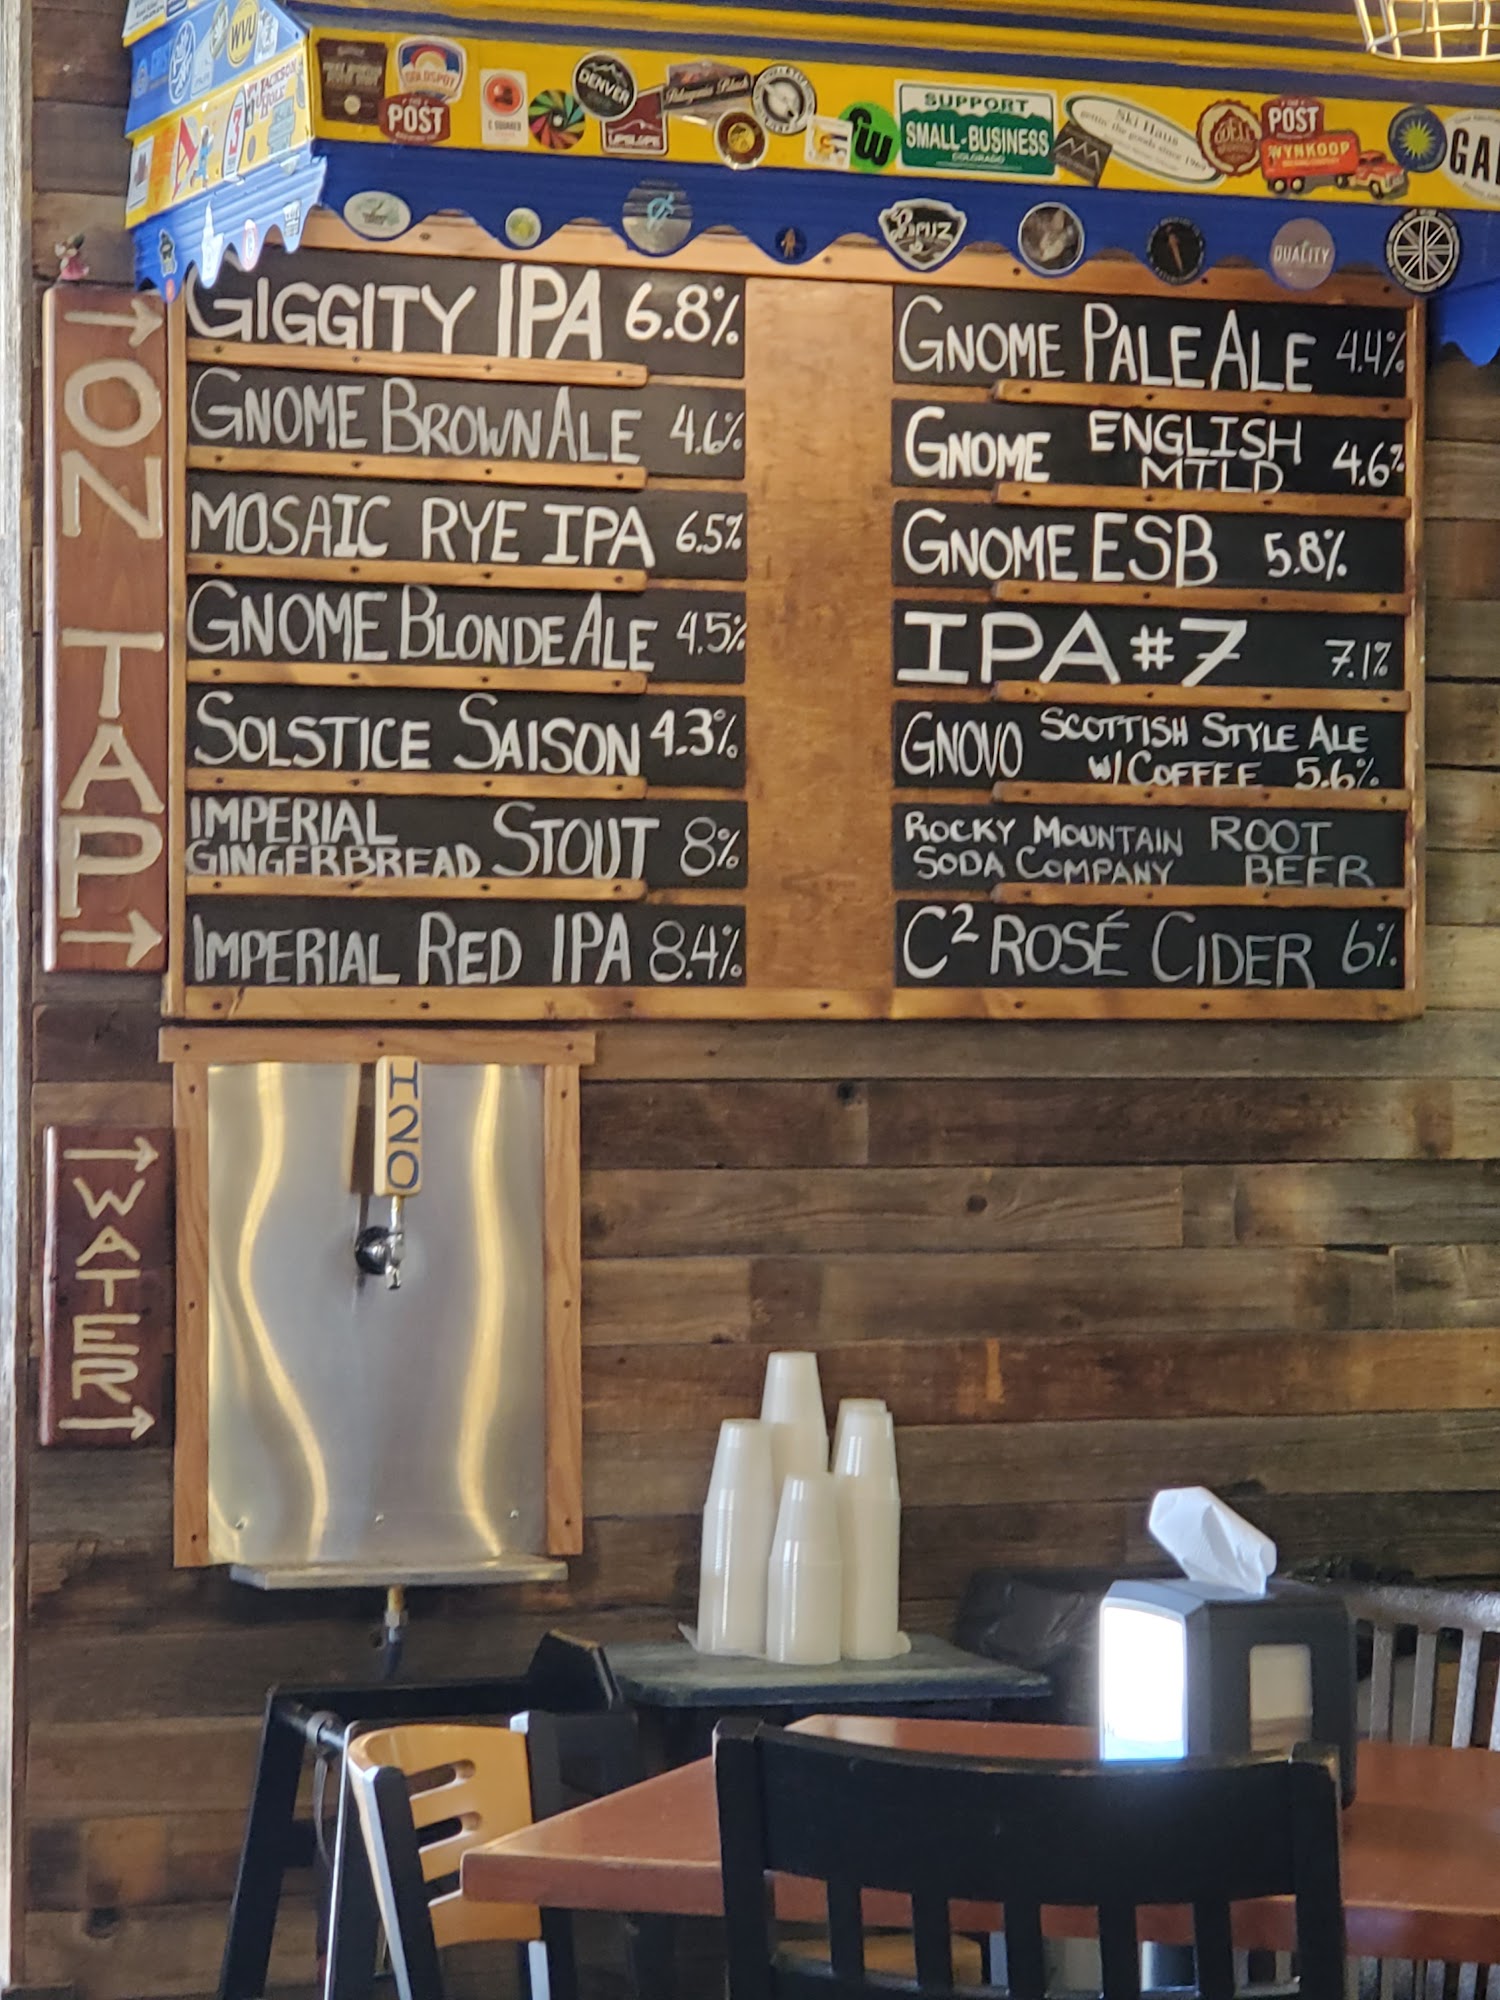 WVU
JACKSON HOLE
GOLDSPOT
POST
C SQUARED
DENVER
UPSLOPE
SUPPORT
SMALL-BUSINESS
COLORADO
Ski Haus
gettin' the goods since 1969
ODELL
THE
POST
WYNKOOP
GA
QUALITY
→ ON TAP →
GIGGITY IPA 6.8%
GNOME BROWN ALE 4.6%
MOSAIC RYE IPA 6.5%
GNOME BLONDE ALE 4.5%
SOLSTICE SAISON 4.3%
IMPERIAL
GINGERBREAD STOUT 8%
IMPERIAL RED IPA 8.4%
GNOME PALE ALE 4.4%
GNOME ENGLISH
MILD 4.6%
GNOME ESB 5.8%
IPA #7 7.1%
GNOVO SCOTTISH STYLE ALE
W/ COFFEE 5.6%
ROCKY MOUNTAIN ROOT
SODA COMPANY BEER
C² ROSÉ CIDER 6%
H2O
→ WATER →